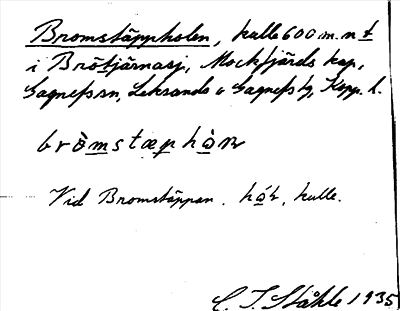 Bromstäppholen, kulle 600 m. n t
i Brötjärnasj, Mockfjärds kap,
Gagnefs sn, Leksands o Gagnefs tg, Kopp. l.
bròmstæphòn
Vid Bromstäppan. hól, kulle.
C. I. Ståhle 1935